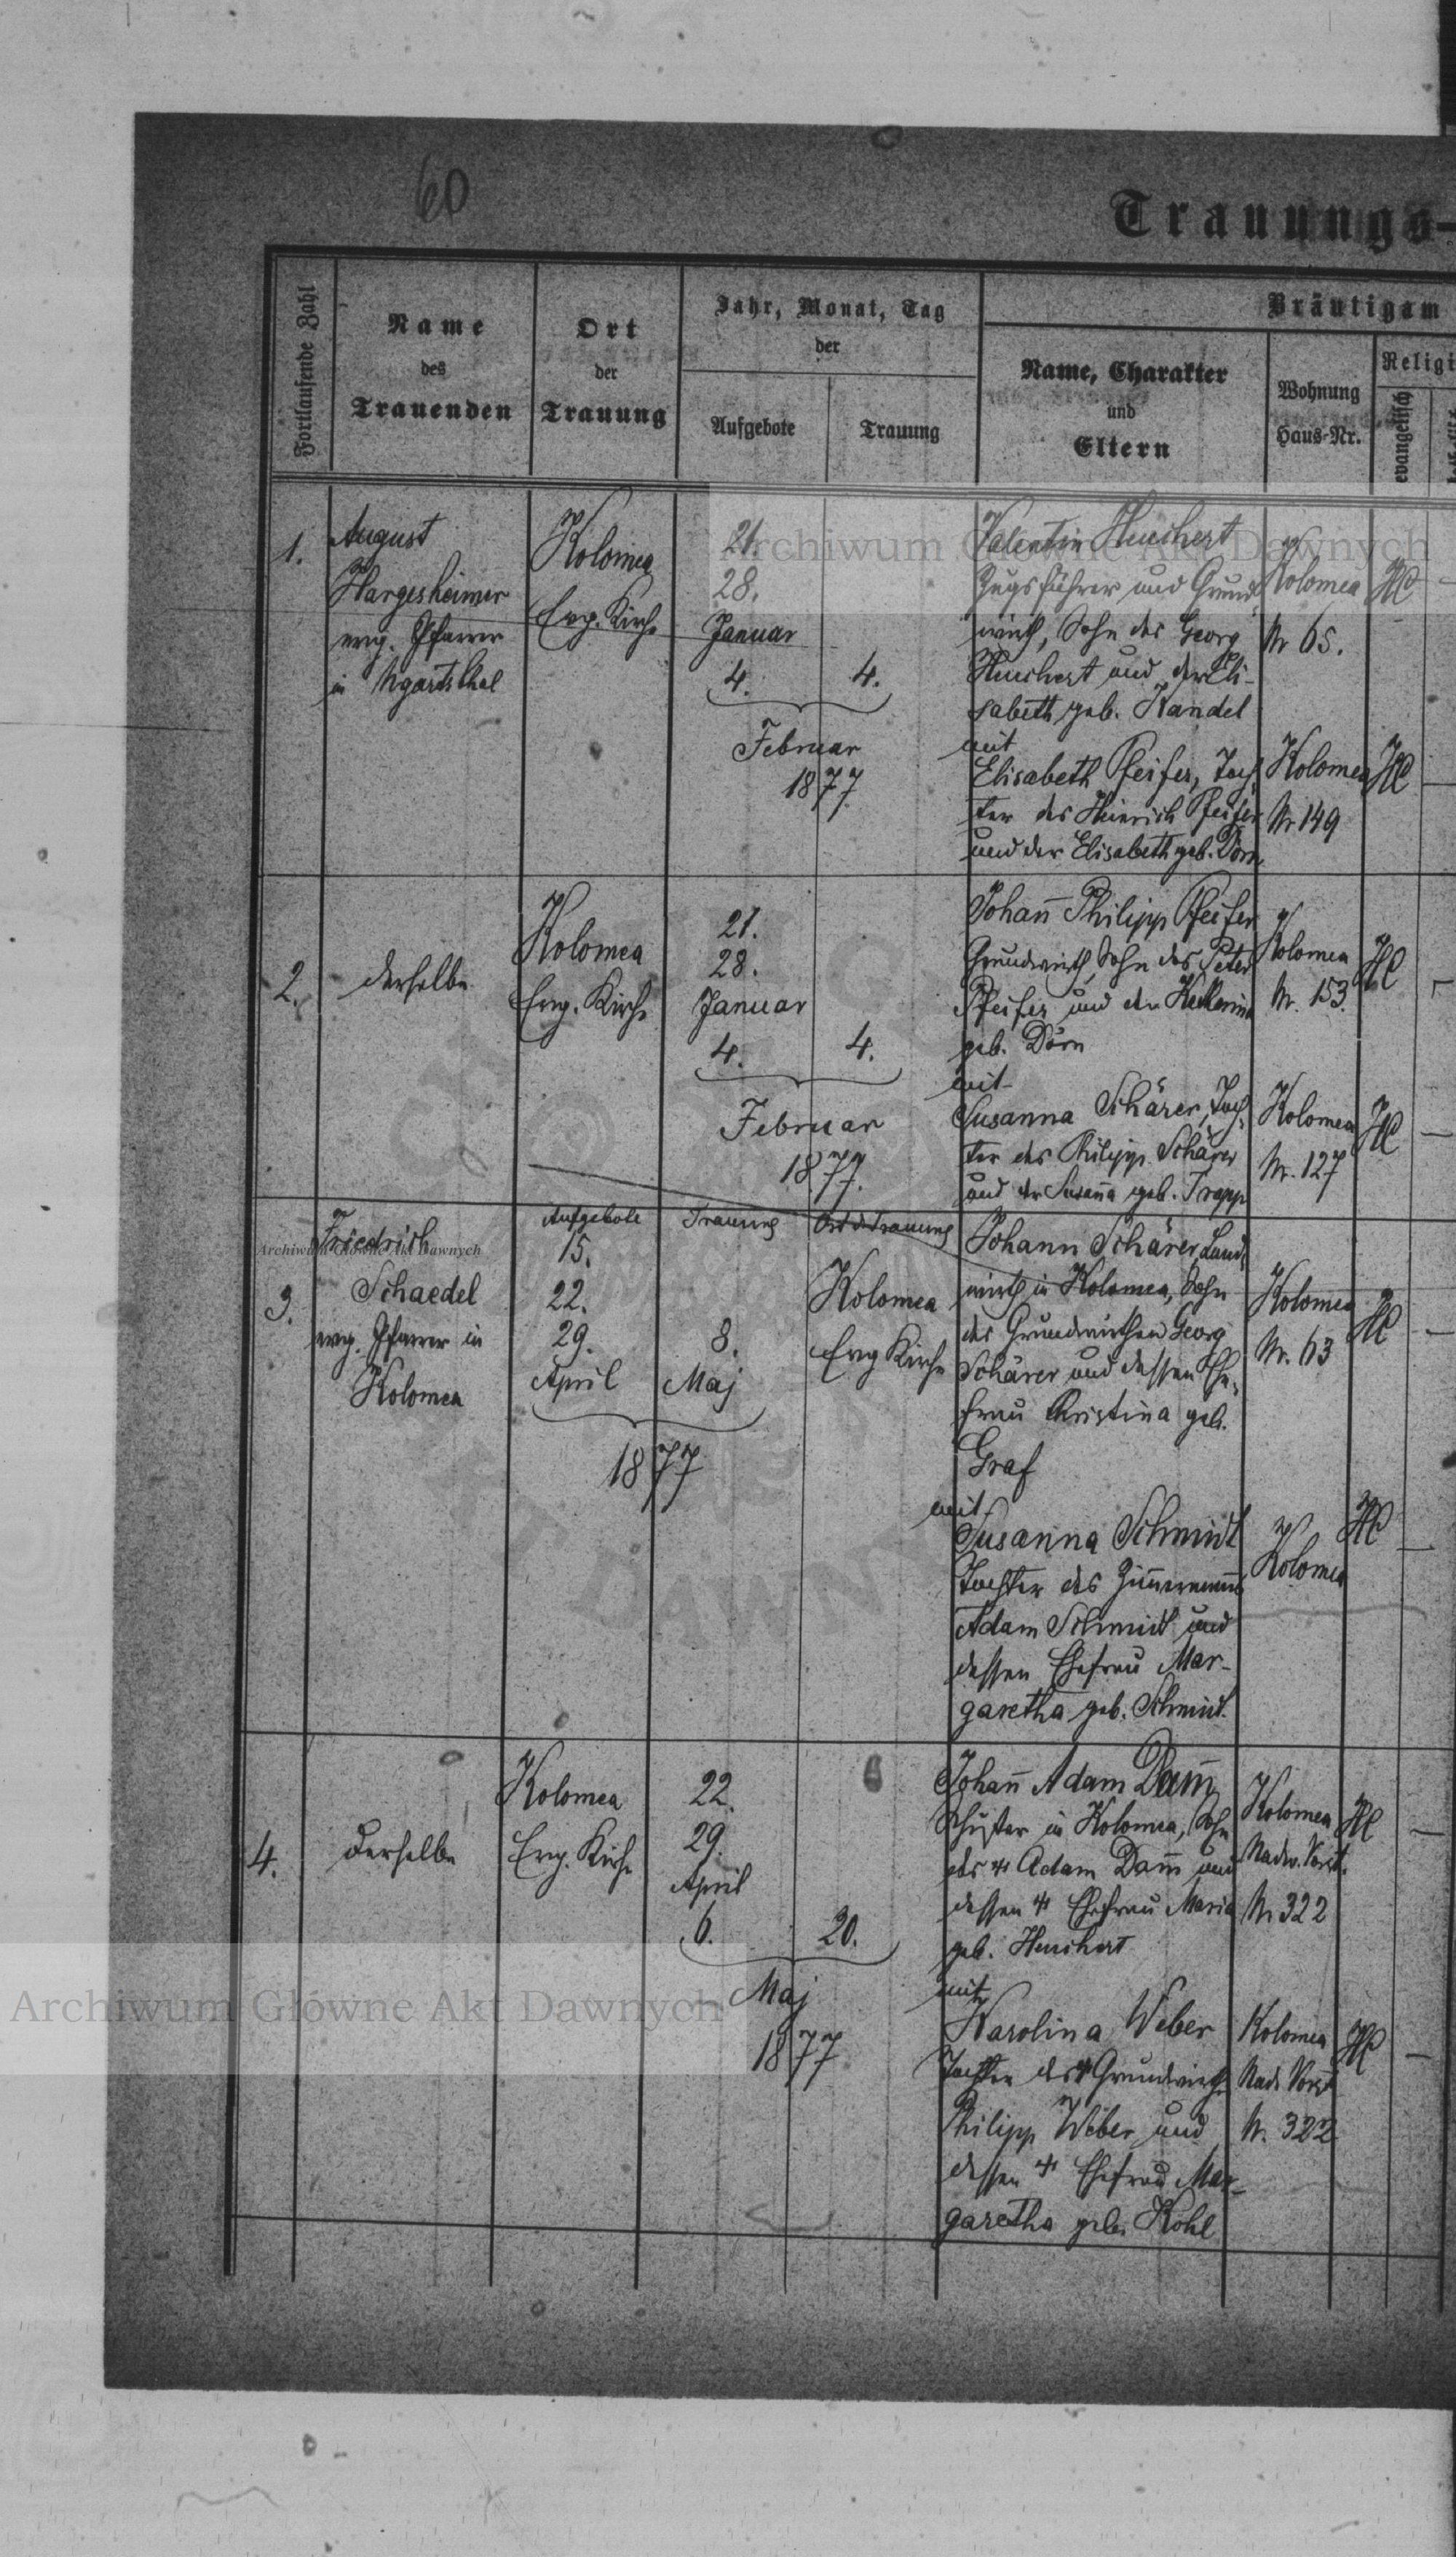 60
Trauungs-
Fortlaufende Zahl
Name
des
Trauenden
Ort
der
Trauung
Jahr, Monat, Tag
der
Aufgebote
Trauung
Bräutigam
Name, Charakter
und
Eltern
Wohnung
Haus-Nr.
Religi
evangelisch
1.
August
Hargesheimer
evg. Pfarrer
in Ugartsthal
Kolomea
Evg. Kirche
21.
28.
Januar
4.
4.
Februar
1877
Valentin Heuchert
Zugsführer und Grund
wirth, Sohn des Georg
Heuchert und der Eli-
sabeth geb. Kandel
mit
Elisabeth Pfeifer, Toch
ter des Heinrich Pfeifer
und der Elisabeth geb. Dörn
Kolomea
Nr 65.
HC
Kolomea
Nr 149
HC
2.
derselbe
Kolomea
Evg. Kirche
21.
28.
Januar
4.
4.
Februar
1877.
Johañ Philipp Pfeifer
Grundwirth, Sohn des Peter
Pfeifer und der
geb. Dörn
mit
Susanna Schärer, Toch-
ter des Philipp Schärer
und der Susaña geb. Trapp
Kolomea
Nr. 153.
HC
Kolomea
Nr. 127
HC
3.
Friedrich
Schaedel
evg. Pfarrer in
Kolomea
Aufgebote
15.
22.
29.
April
Trauung
8.
Maj
1877
Ort d. Trauung
Kolomea
Evg Kirche
Johann Schärer, Land
wirth in Kolomea, Sohn
des Grundwirthen Georg
Schärer und dessen Ehe-
frau Christina geb.
Graf
mit
Susanna Schmidt
Tochter des Zim̄ermanns
Adam Schmidt und
dessen Ehefrau Mar-
garetha geb. Schmidt.
Kolomea
Nr. 63
HC
Kolomea
HC
4.
derselbe
Kolomea
Evg. Kirche
22.
29.
April
6.
20.
Maj
1877
Johañ Adam Dam̄
Schuster in Kolomea, Sohn
des † Adam Dam̄ und
dessen † Ehefrau Maria
geb. Heuchert
mit
Karolina Weber
Tochter des † Grundwirths
Philipp Weber und
dessen † Ehefrau Mar-
garetha geb. Kohl
Kolomea
Nadw. Vorst.
Nr 322
HC
Kolomea
Nadw Vorst
Nr. 322
HC
Archiwum Główne Akt Dawnych
Archiwum Główne Akt Dawnych
Archiwum Główne Akt Dawnych